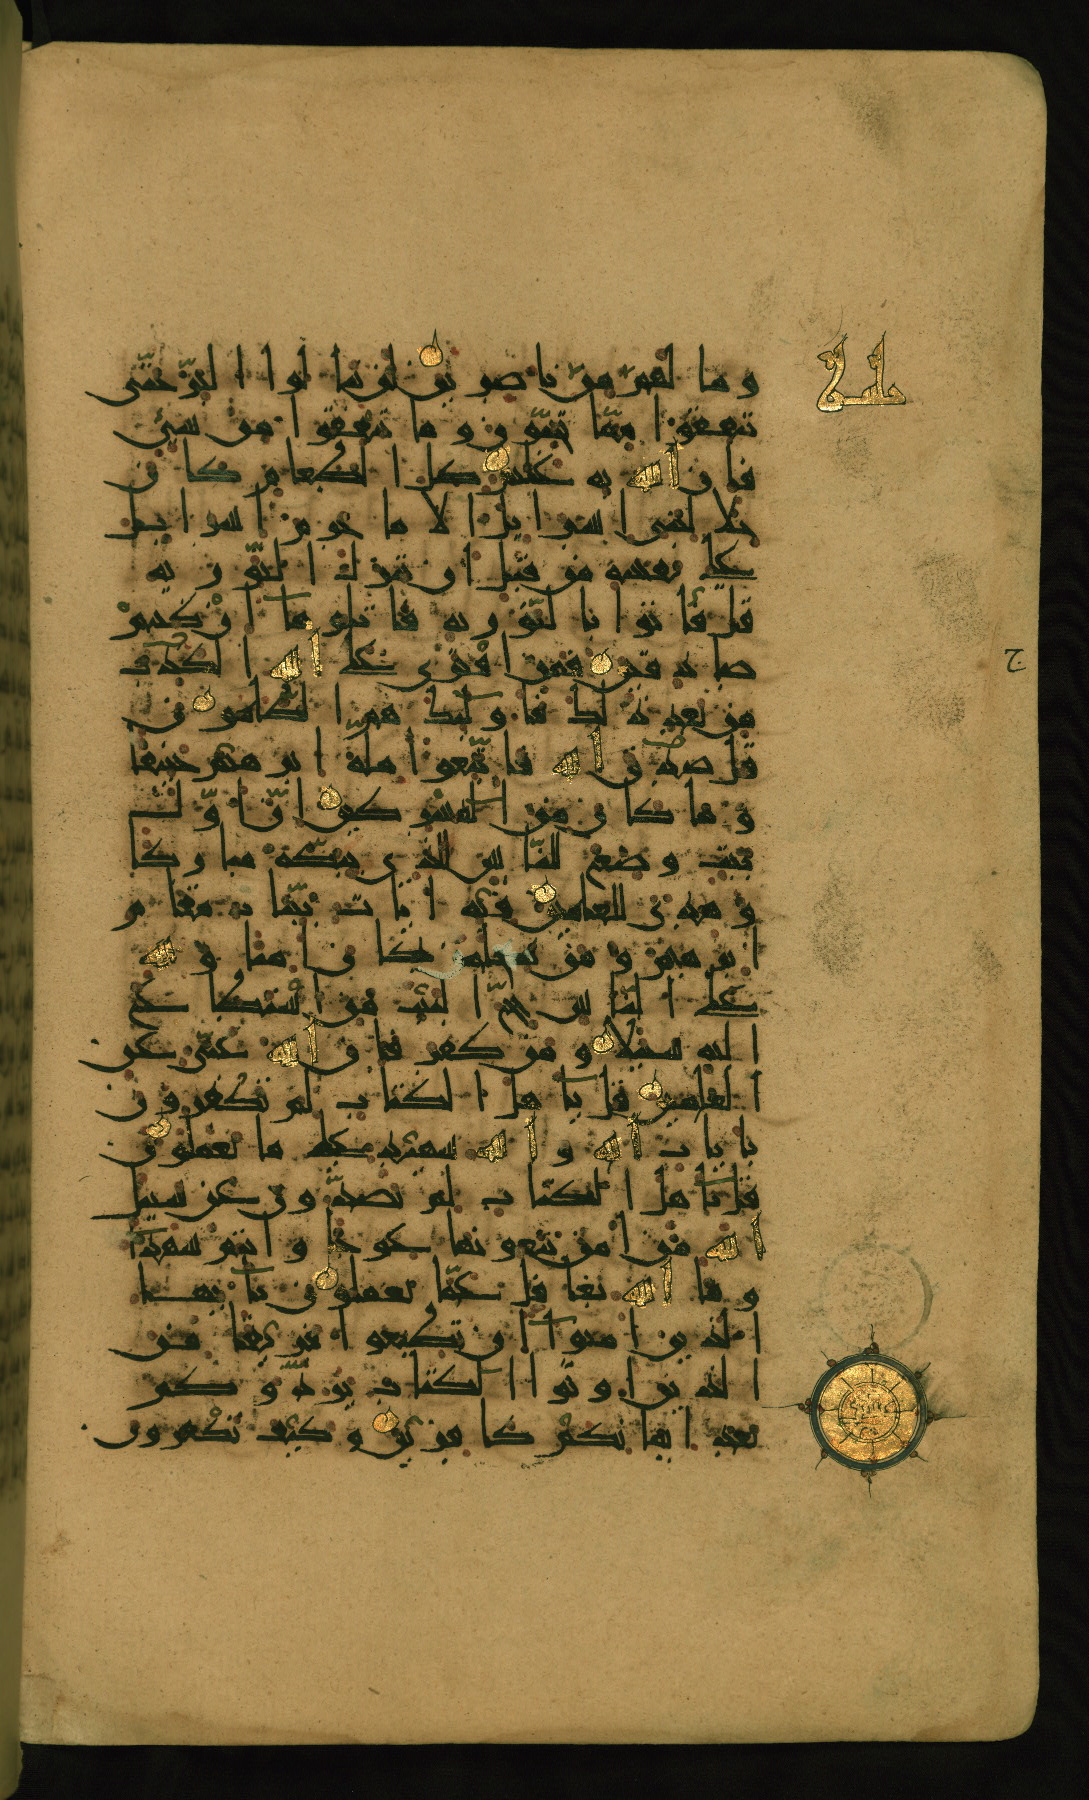 وما لهم من ناصرين لن تنالوا البر حتى
تنفقوا مما تحبون وما تنفقوا من شيء
فان الله به عليم كل الطعام كان
حلا لبني اسرايل الا ما حرم اسرايل
على نفسه من قبل ان تنزل التورية
قل فاتوا بالتورية فاتلوها ان كنتم
صادقين فمن افترى على الله الكذب
من بعد ذلك فاولئك هم الظالمون
قل صدق الله فاتبعوا ملة ابرهيم حنيفا
وما كان من المشركين ان اول
بيت وضع للناس للذي ببكة مباركا
وهدى للعالمين فيه ايات بينات مقام
ابرهيم ومن دخله كان امنا ولله
على الناس حج البيت من استطاع
اليه سبيلا ومن كفر فان الله غني عن
العالمين قل يا اهل الكتاب لم تكفرون
بايات الله والله شهيد على ما تعملون
قل يا اهل الكتاب لم تصدون عن سبيل
الله من امن تبغونها عوجا وانتم شهداء
وما الله بغافل عما تعملون يا ايها
الذين امنوا ان تطيعوا فريقا من
الذين اوتوا الكتاب يردوكم
بعد ايمانكم كافرين وكيف تكفرون
ج